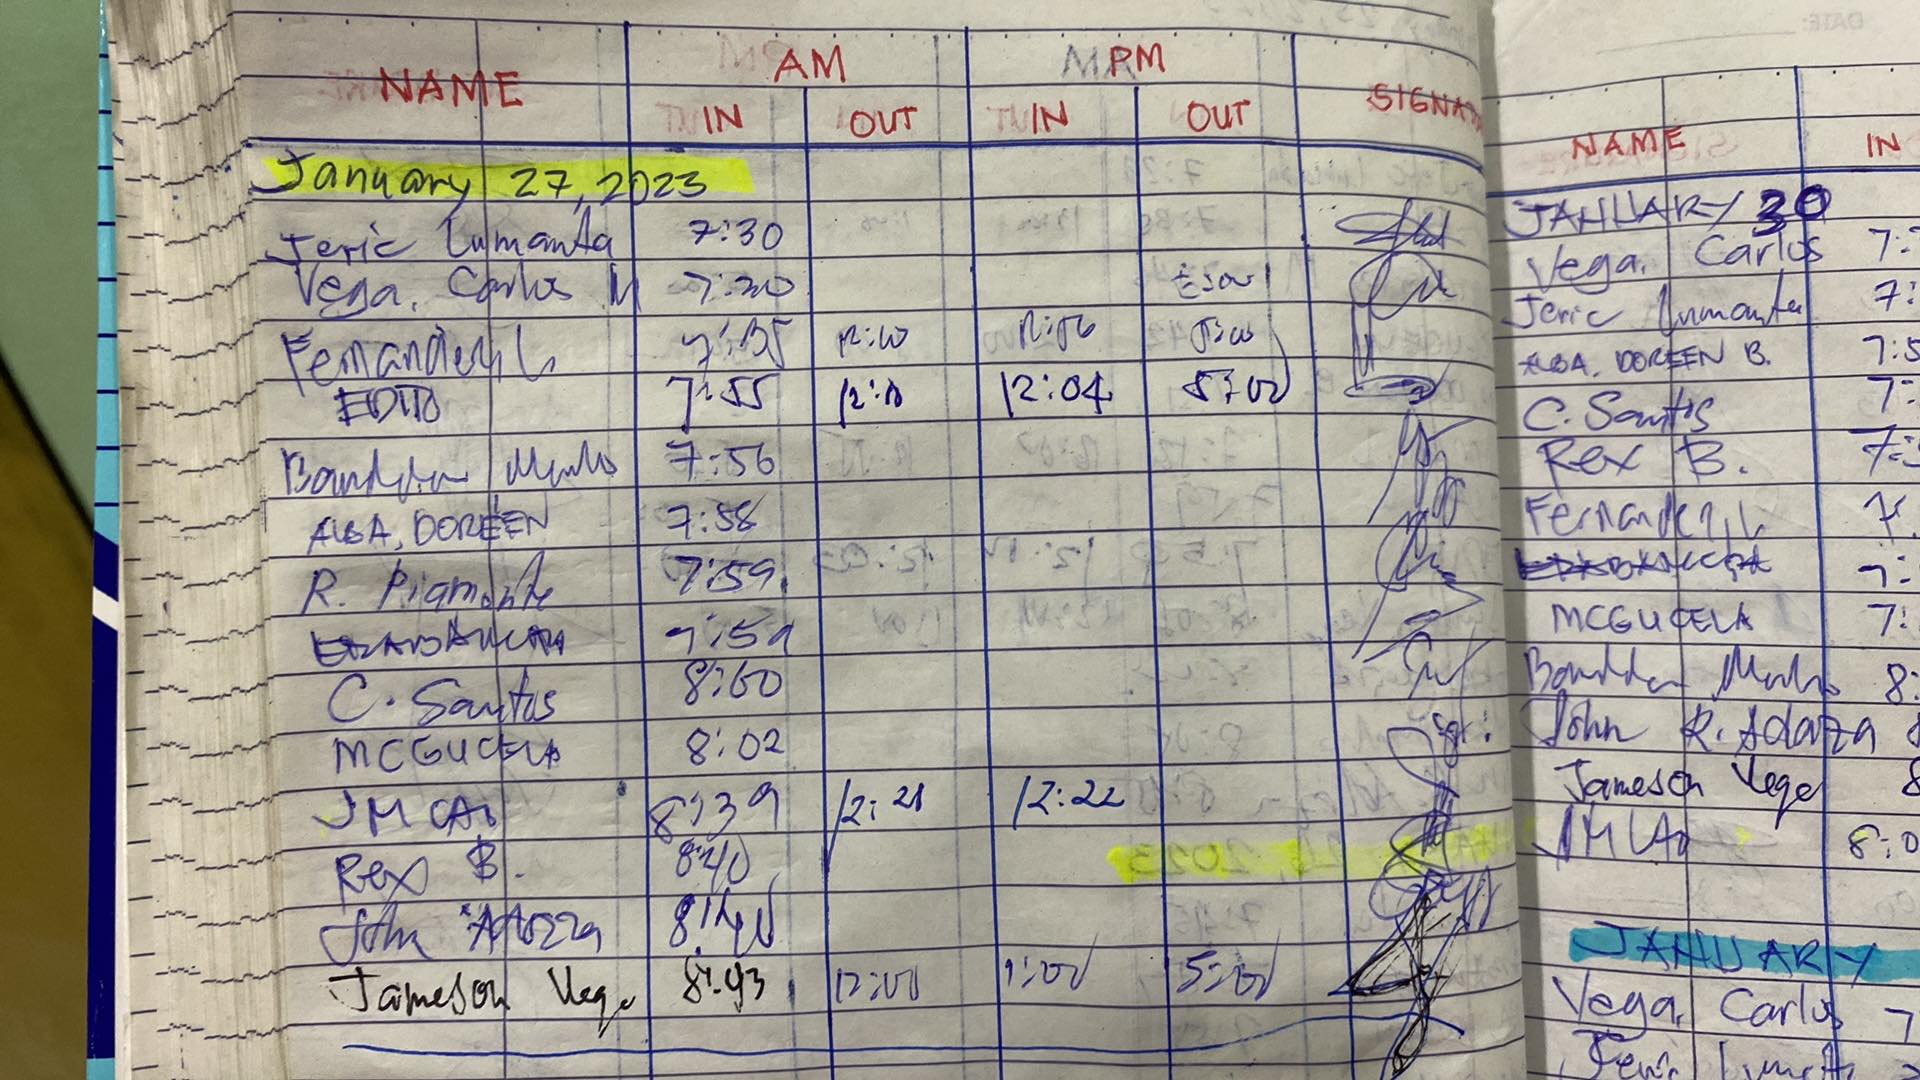 NAME AM PM SIGNA
IN OUT IN OUT
January 27, 2023
Jeric Lumanta 7:30
Vega, Carlos M 7:30
Fernandez, L 7:35 12:00 12:56 5:00
EDITO 7:55 12:0 12:04 5:00
7:56
ALBA, DOREEN 7:58
R. Piamonte 7:59
7:59
C. Santos 8:00
MCGUCELA 8:02
JM 8:39 12:21 12:22
Rex B. 8:40
John Adarza 8:40
Jameson Vega 8:43 12:00 1:00 5:00
NAME IN
JANUARY 30
Vega, Carlos 7:
Jeric Lumanta 7:
ALBA, DOREEN B. 7:5
C. Santos 7:
Rex B. 7:
Fernandez, L 7:
7:
MCGUCELA 7:
8:
John R. Adarza 8
Jameson Vega 8
JM 8:0
JANUARY
Vega, Carlos 7
Jeric Lumanta